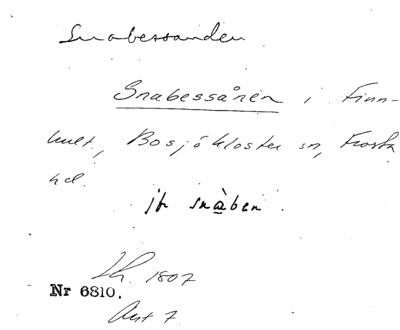 Snabessanden
Snabessånen i Finn-
hult, Bosjökloster sn, Frosta
hd.
jfr snàben.
Lh. 1807
Nr 6810.
Avst 7